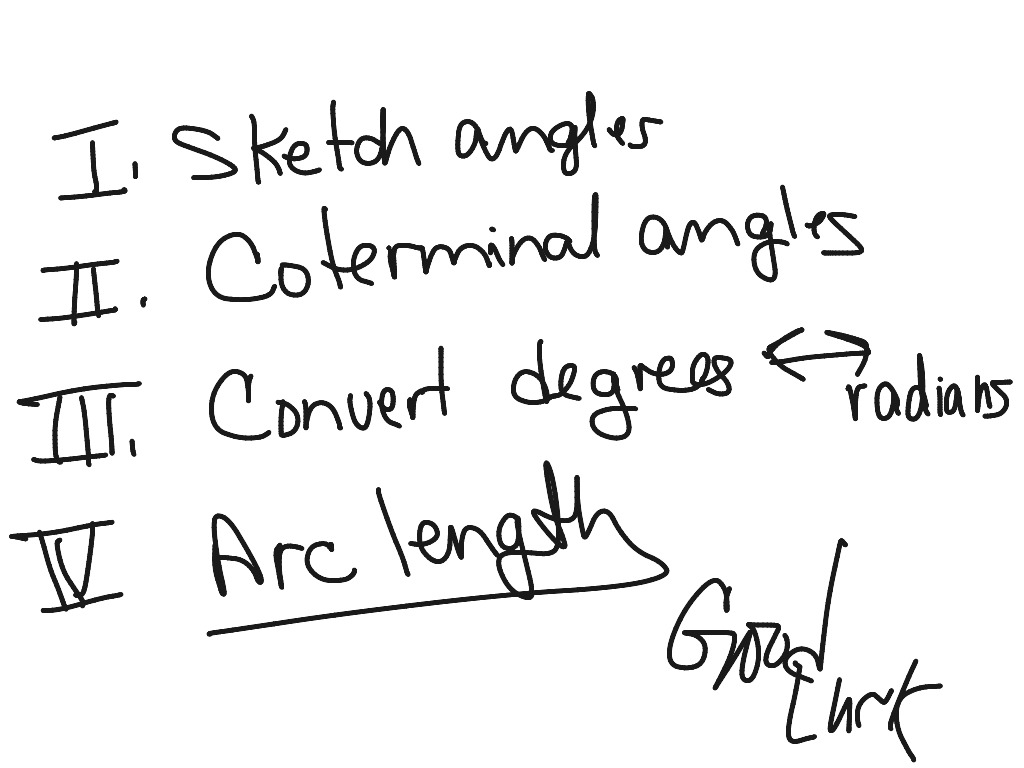 I. Sketch angles
II. Coterminal angles
III. Convert degrees ↔ radians
IV Arc length
Good
Luck